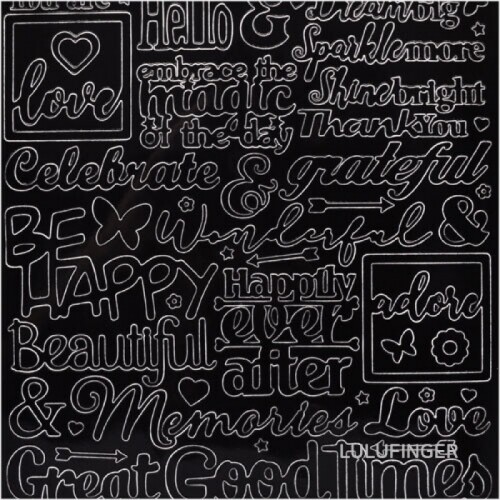 you are
Hello &
Dreambig
Sparklemore
love
embrace the
magic
of the day
Shinebright
ThankYou
Celebrate & grateful
BE
HAPPY
Wonderful &
Happily
ever
after
adore
Beautiful
& Memories Love
LULUFINGER
Great Good Times